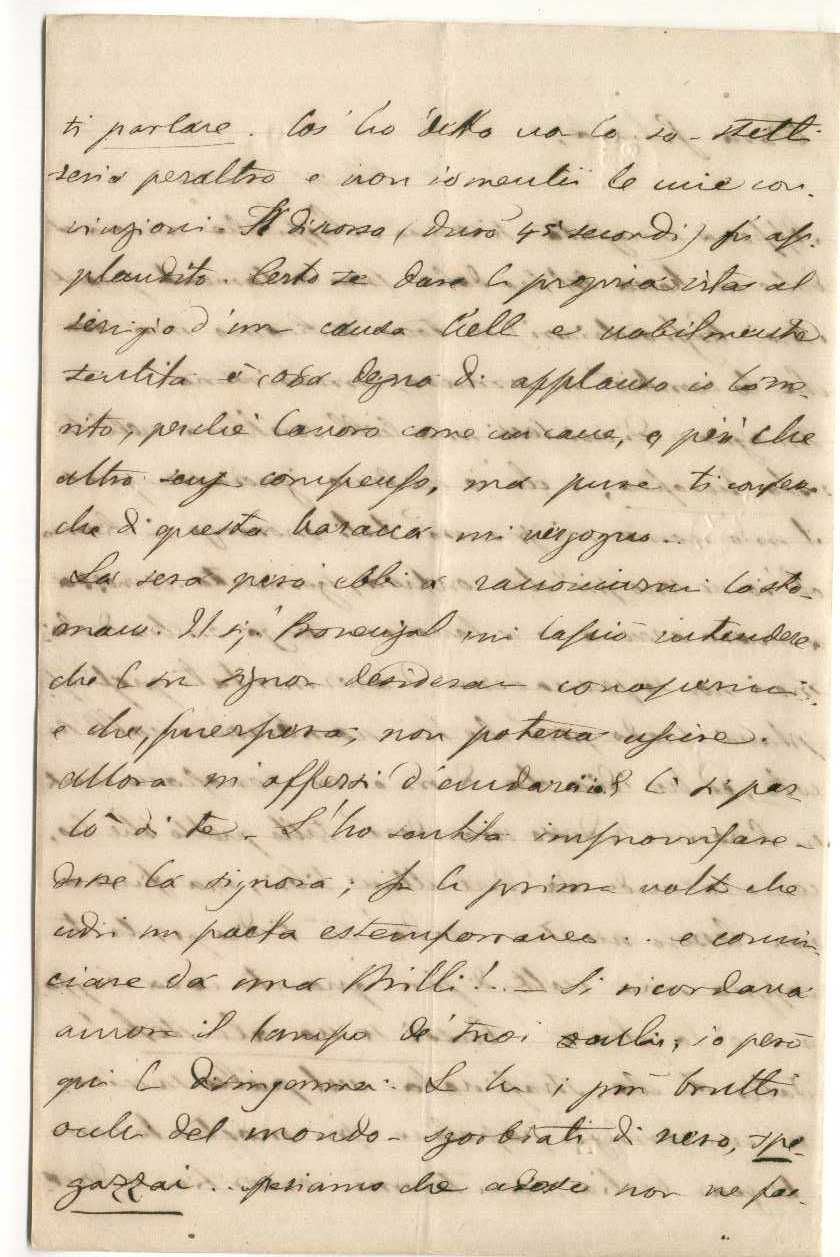 ti parlare. Cos' ho detto non lo so - stetti
seria peraltro e non ismentii le mie con-
vinzioni. Il discorso (durò 45 secondi) fu ap-
plaudito. Certo se dare la propria vita al
servizio d'un causa bella e nobilmente
sentita è cosa degna di applauso io lo me-
rito, perchè lavoro come un cane, e più che
altro senza compenso, ma pure ti confesso
che di questa baracca mi vergogno..
La sera però ebbi a racconciarmi lo sto-
maco. Il sig.' Provenzal mi lasciò intendere
che la sua signora desiderava conoscermi
e che, puerpera, non poteva uscire.
Allora mi offersi d'andarci e lì si par-
lò di te - L'ho sentita improvvisare -
disse la signora; fu la prima volta che
udii un poeta estemporaneo .. e comin-
ciare da una Milli! .. - Si ricordava
ancora il lampo de' tuoi occhi; io però
qui la disingannai. Ella ha i più brutti
occhi del mondo - sgorbiati di nero, spe-
gazzai .. speriamo che adesso non ne fac-